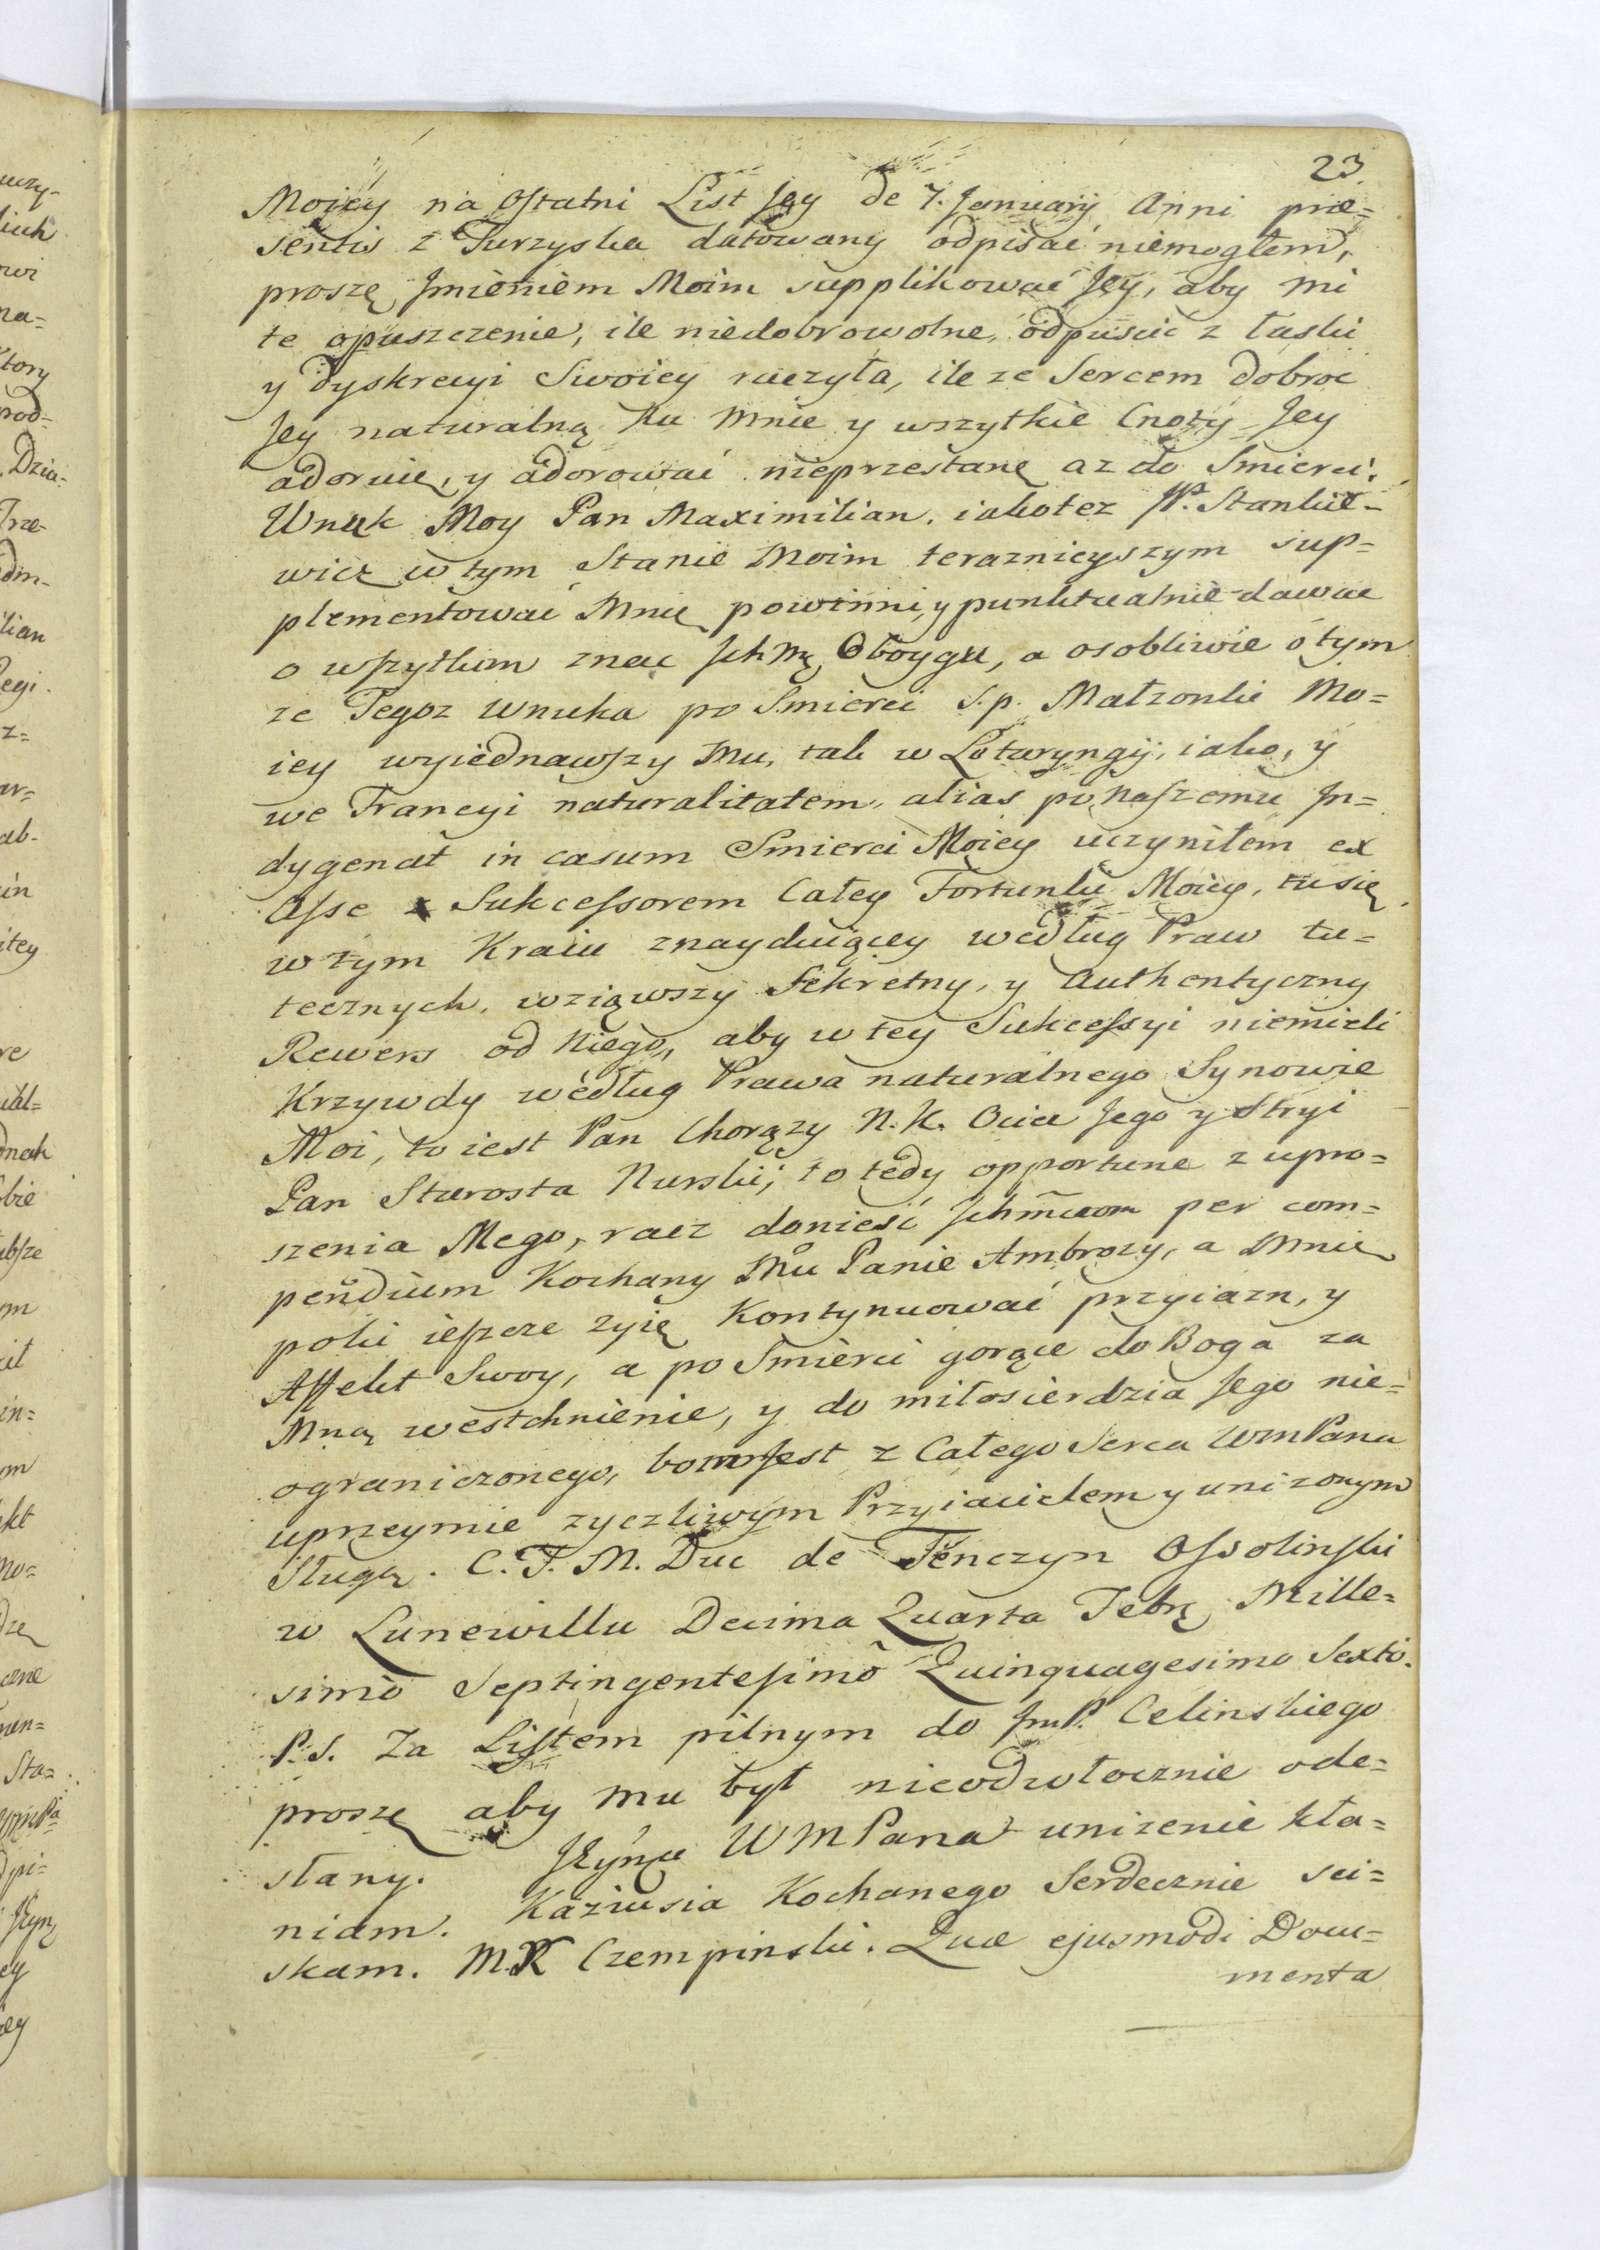 23
Moiey na Ostatni List Jey de 7. January Anni præ=
sentis z Turzyska datowany odpisać niemogłem,
proszę Jmieniem Moim supplikować Jey, aby mi
te opuszczenie, ile niedobrowolne, odpuscić z łaski
y dyskrecyi Swoiey raczyła, ile ze Sercem dobroc
Jey naturalną ku mnie y wszytkie Cnoty Jey
adoruię, y adorować nieprzestanę az do Smierci.
Wnuk Moy Pan Maximilian, iakotez JP. Stankie=
wicz w tym Stanie Moim teraznieyszym sup=
plementować Mnie powinni, y punktualnie dawac
o wszytkim znac Ichmę Oboygu, a osobliwie o tym
ze Tegoz Wnuka po Smierci S.p. Małzonki Mo=
iey wyiednawszy Mu, tak w Lotaryngij, iako, y
we Francyi naturalitatem, alias po Naszemu In=
dygenat in casum Smierci Moiey uczyniłem ex
Asse Sukcessorem Całey Fortunki Moiey, tu się
w tym Kraiu znayduiącey według Praw tu=
tecznych, wziąwszy Sekretny, y Authentyczny
Rewers od Niego, aby w tey Sukcessyi niemieli
Krzywdy według Prawa naturalnego Synowie
Moi, to iest Pan Chorązy N.K. Ociec Jego y Stryi
Pan Starosta Nurski; to tedy opportune z upro=
szenia Mego, racz donieść Ichmciom per com=
pendium Kochany Mu Panie Ambrozy, a Mnie
poki ieszcze zyię Kontynuować przyiazn, y
Affekt Swoy, a po Smierci gorące do Boga za
Mną westchnienie, y do miłosierdzia Jego nie=
ograniczonego, bom Jest z Całego Serca WmPana
uprzeymie zyczliwym Przyiacielem y unizonym
Sługą. C. F. M. Duc de Tenczyn Ossolinski
w Lunewillu Decima Quarta Febr. Mille=
simo Septingentesimo Quinquagesimo Sexto.
P.S. Za Listem pilnym do JmP. Celinskiego
proszę aby mu był nieodwłocznie ode=
słany. WMPana unizenie kła=
niam. Kaziusia Kochanego Serdecznie sci=
skam. M.K Czempinski. Quæ ejusmodi Docu=
menta